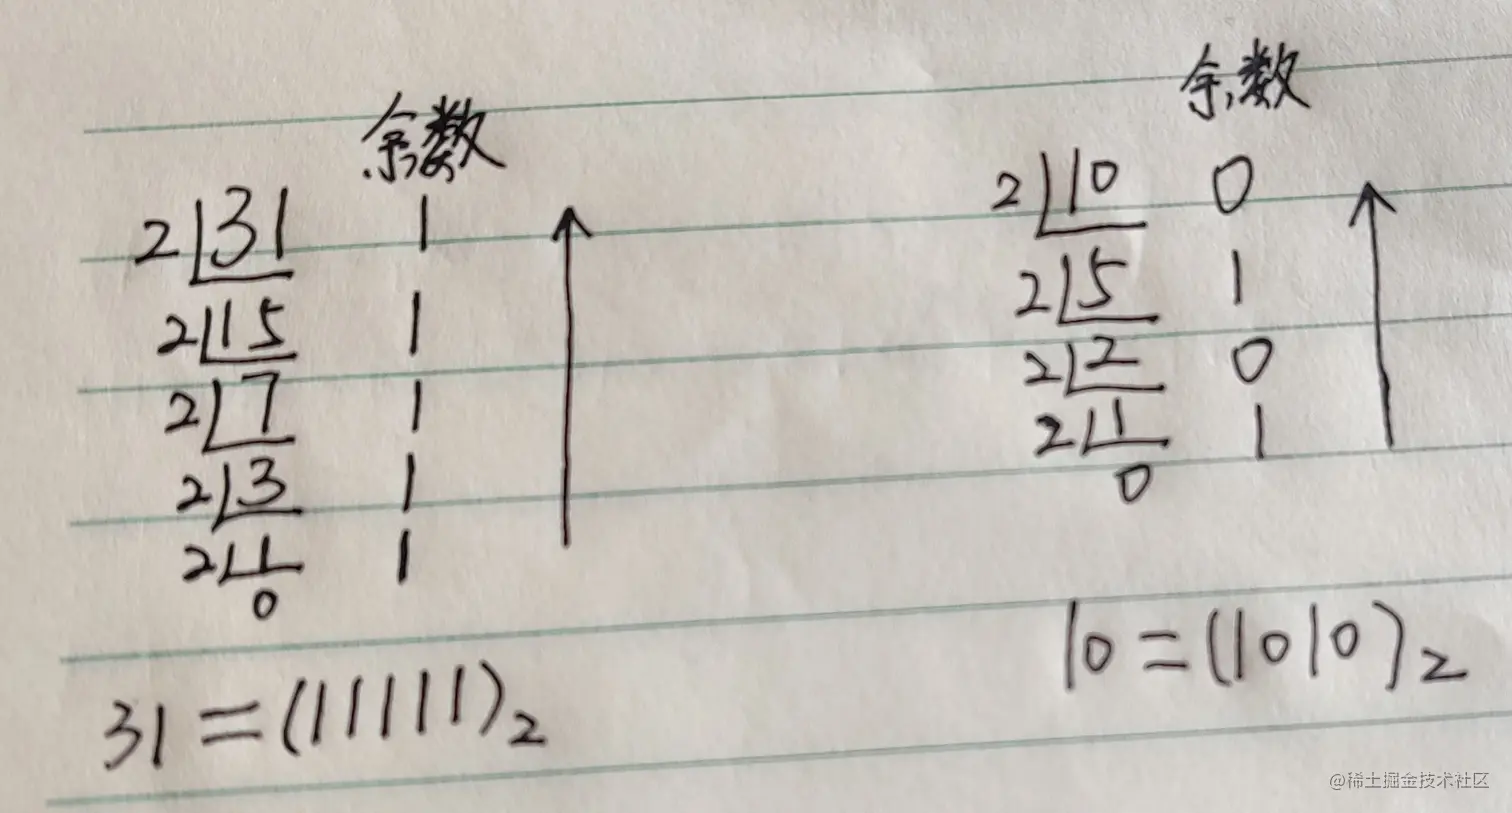 余数
2 31 1
2 15 1
2 7 1
2 3 1
2 1 1
0
31=(11111)₂
余数
2 10 0
2 5 1
2 2 0
2 1 1
0
10=(1010)₂
@稀土掘金技术社区